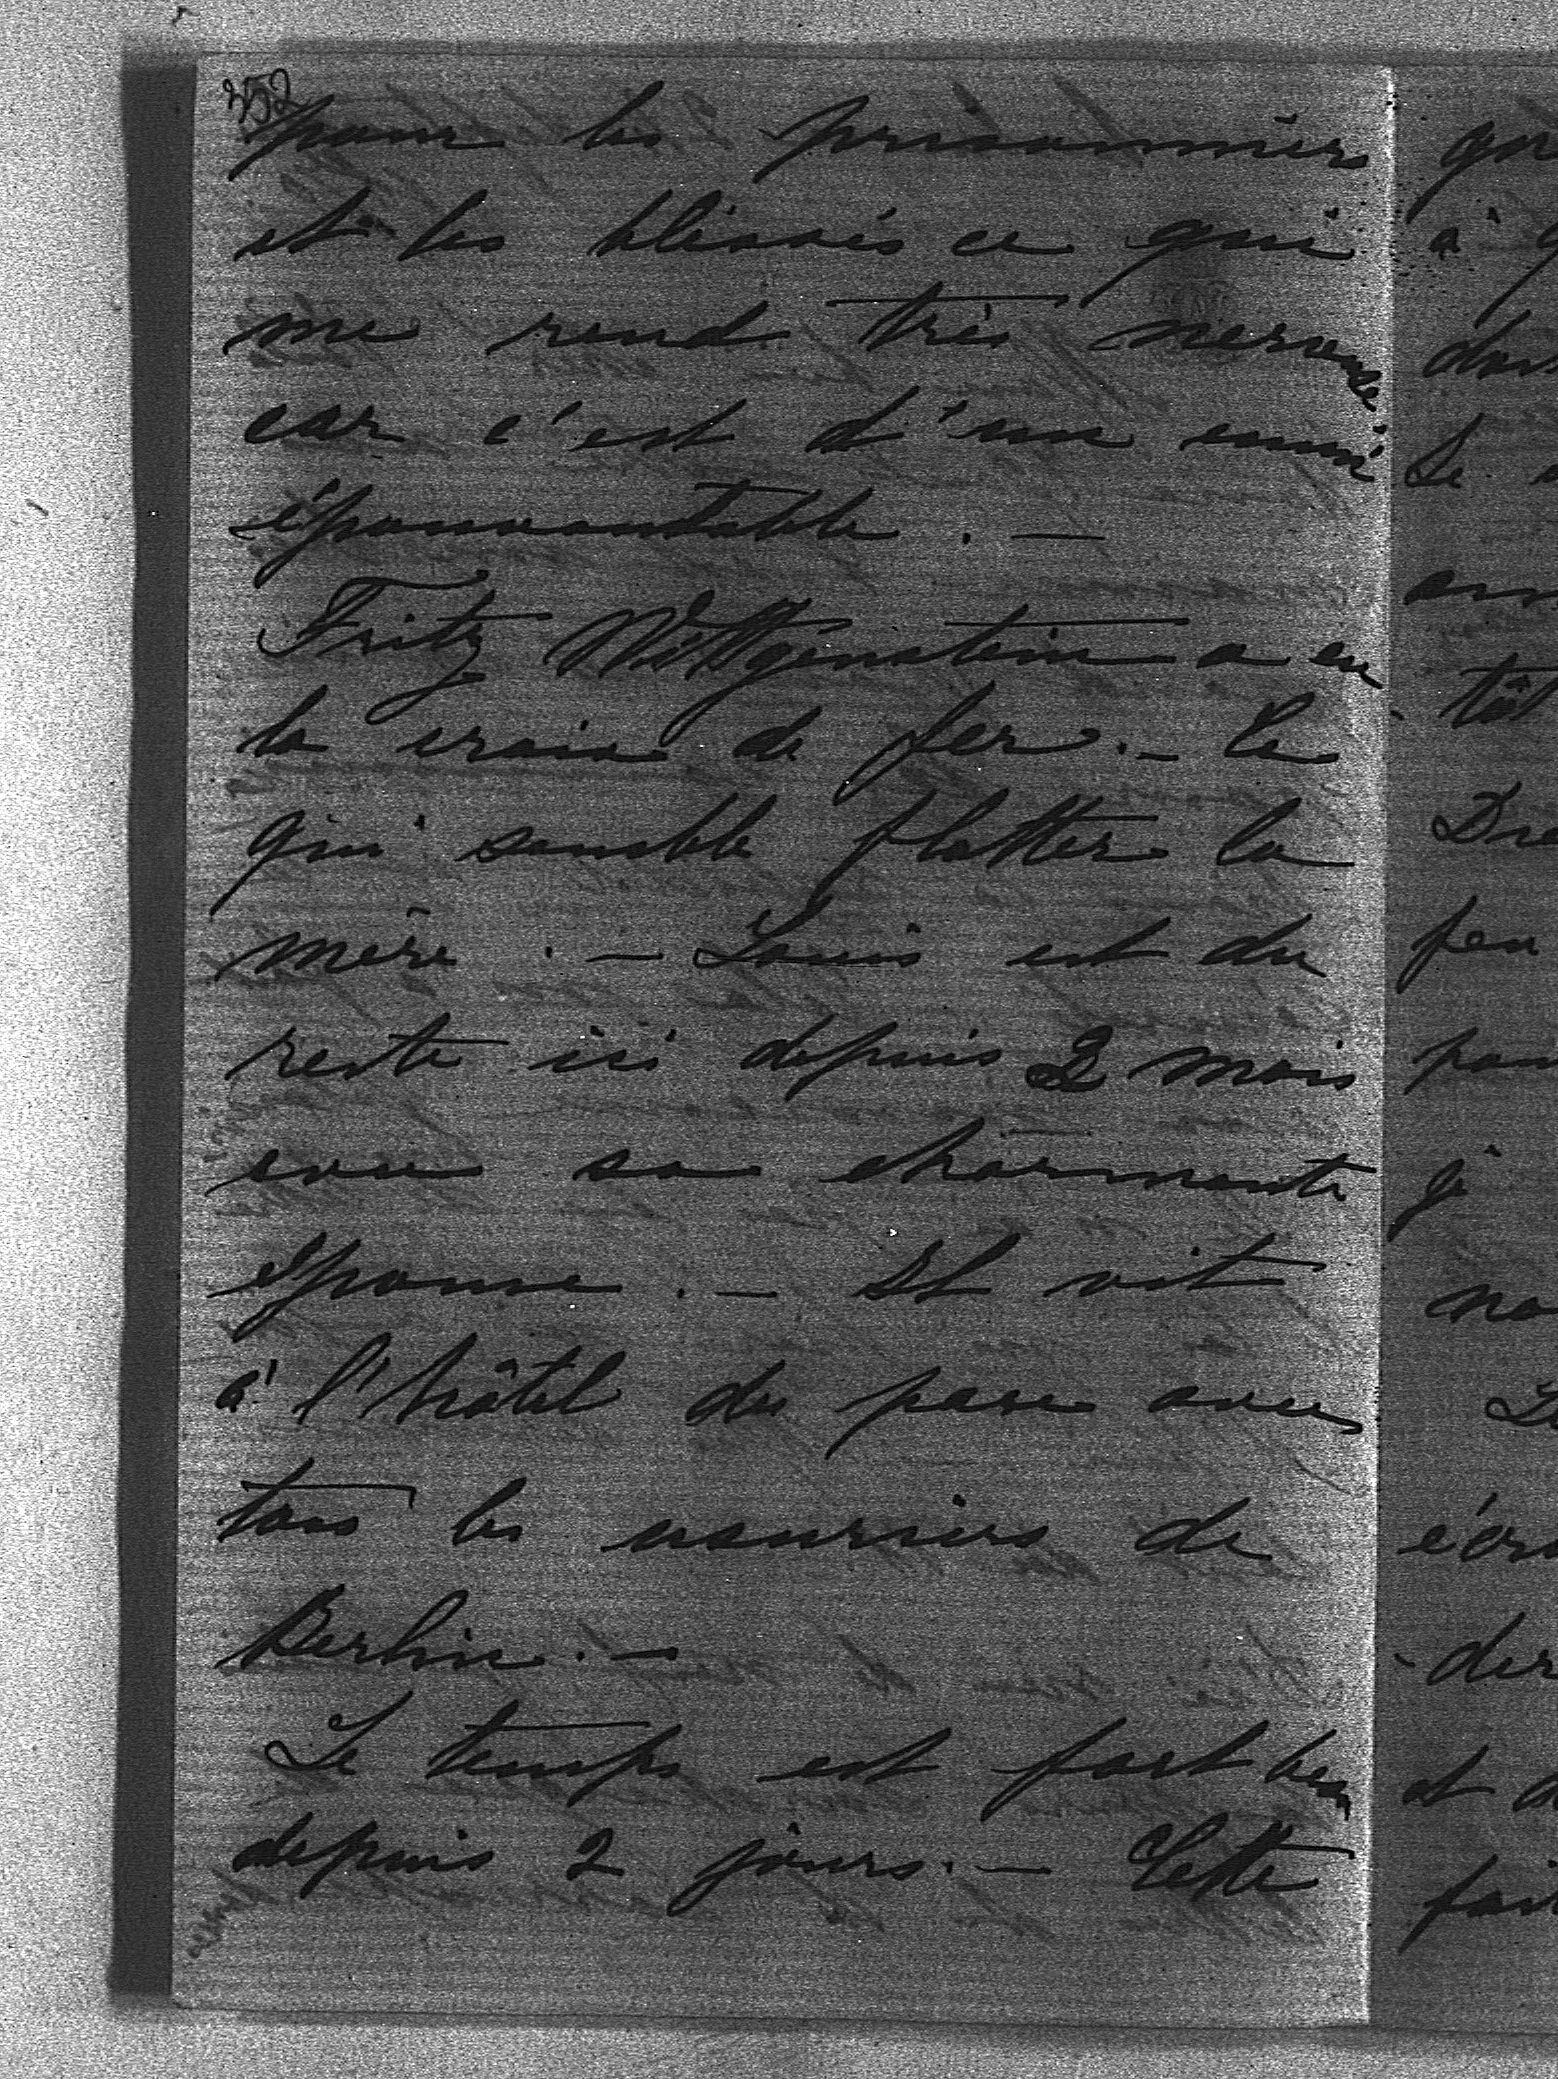 352
pour les prisonniers
et les blessés ce qui
me rend très nerveuse
car c'est d'un ennui
épouvantable . —
Fritz Wittgenstein a eu
la croix de fer. — Ce
qui semble flatter la
mère . — Louis est du
reste ici depuis 2 mois
avec sa charmante
épouse . — Il vit
à l'hôtel du parc avec
tous les usuriers de
Berlin. —
Le temps est fort beau
depuis 2 jours. — Cette